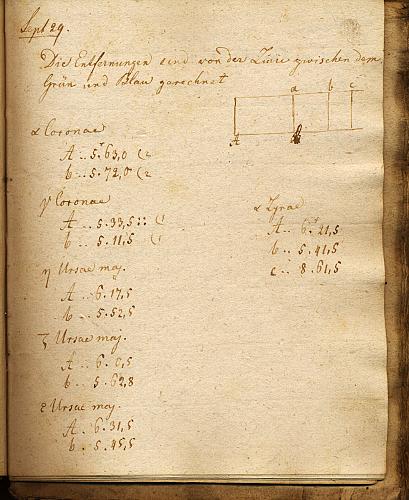 Sept 29.
Die Entfernungen sind von der Linie zwischen dem
Grün und Blau gerechnet
a b c
A b
α Coronae
A .. 5.63,0 (2
b .. 5.72,0 (2
γ Coronae
A .. 5.33,5 :: (1
b .. 5.11,5 (1
η Ursae maj.
A .. 6.17,5
b .. 5.52,5
ζ Ursae maj.
A .. 6.0,5
b .. 5.62,8
ε Ursae maj.
A .. 6.31,5
b .. 5.45,5
α Lyrae
A .. 6.21,5
b .. 5.41,5
c .. 8.61,5